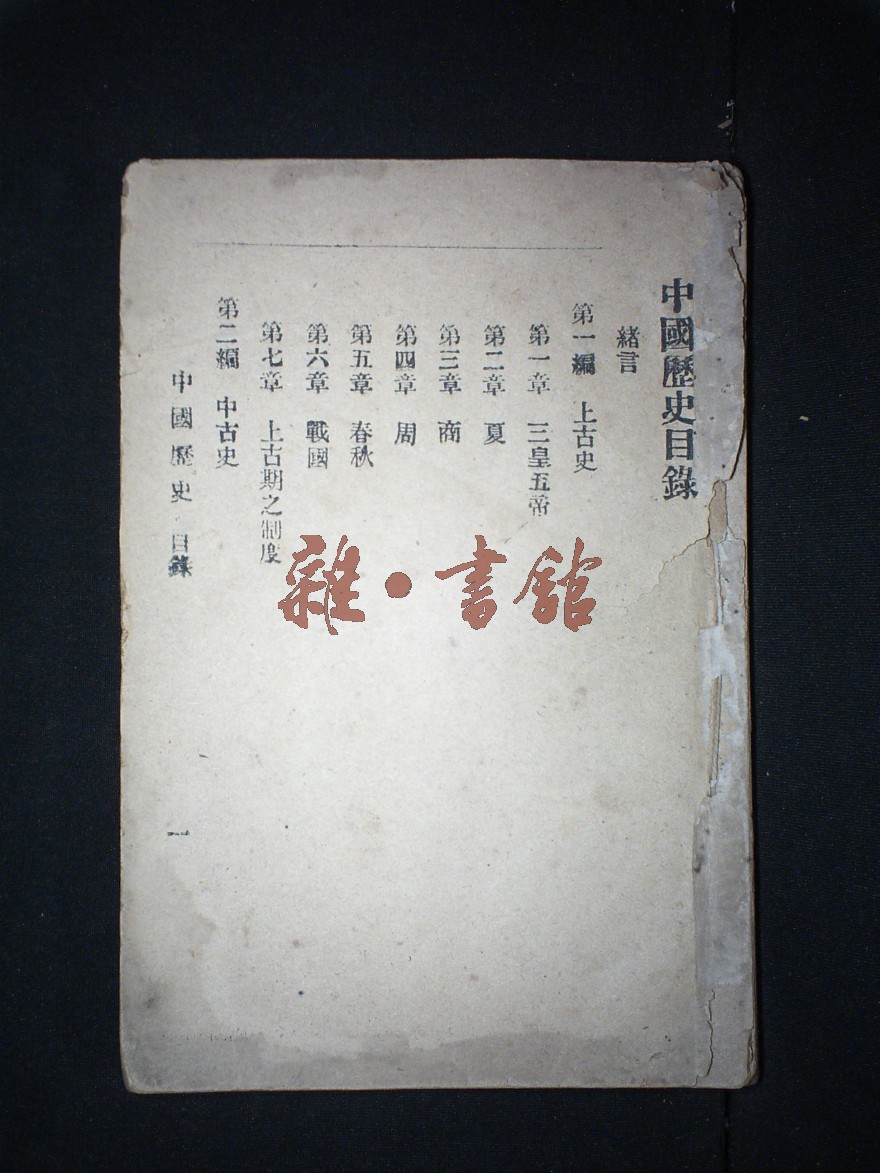 中國歷史目錄
緒言
第一編　上古史
第一章　三皇五帝
第二章　夏
第三章　商
第四章　周
第五章　春秋
第六章　戰國
第七章　上古期之制度
第二編　中古史
中國歷史　目錄
一
雜·書館